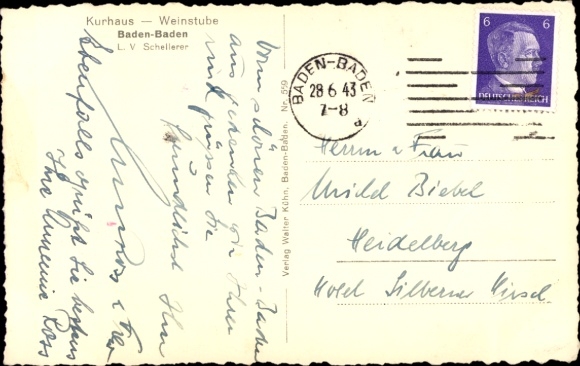 Kurhaus — Weinstube
Baden-Baden
L. V. Schellerer
Vom schönen Baden-Baden
aus gedenken wir Ihrer
und grüssen Sie
Ihr
Ebenfalls grüßt Sie bestens
Ihre Annemie Ross
Verlag Walter Kühn, Baden-Baden. Nr. 559
BADEN-BADEN
28.6.43
7-8
a
6 6
DEUTSCHES REICH
Herrn u Frau
Biebel
Heidelberg
Hotel Silberner Hirsch